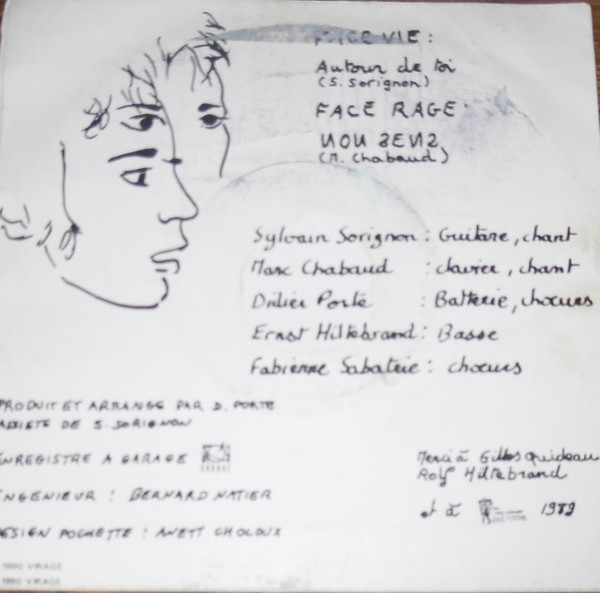 FACE VIE :
Autour de toi
(S. Sorignon)
FACE RAGE :
NON SENS
(M. Chabaud)
Sylvain Sorignon : Guitare, chant
Marc Chabaud : clavier, chant
Didier Porte : Batterie, choeurs
Ernst Hiltebrand : Basse
Fabienne Sabatrie : choeurs
PRODUIT ET ARRANGE PAR D. PORTE
ASSISTE DE S. SORIGNON
ENREGISTRE A GARAGE
INGENIEUR : BERNARD NATIER
DESIGN POCHETTE : ANETT CHOLOUX
Merci à Gilles Quideau
Rolf Hiltebrand
et à 1989
1990 VIRAGE
1990 VIRAGE